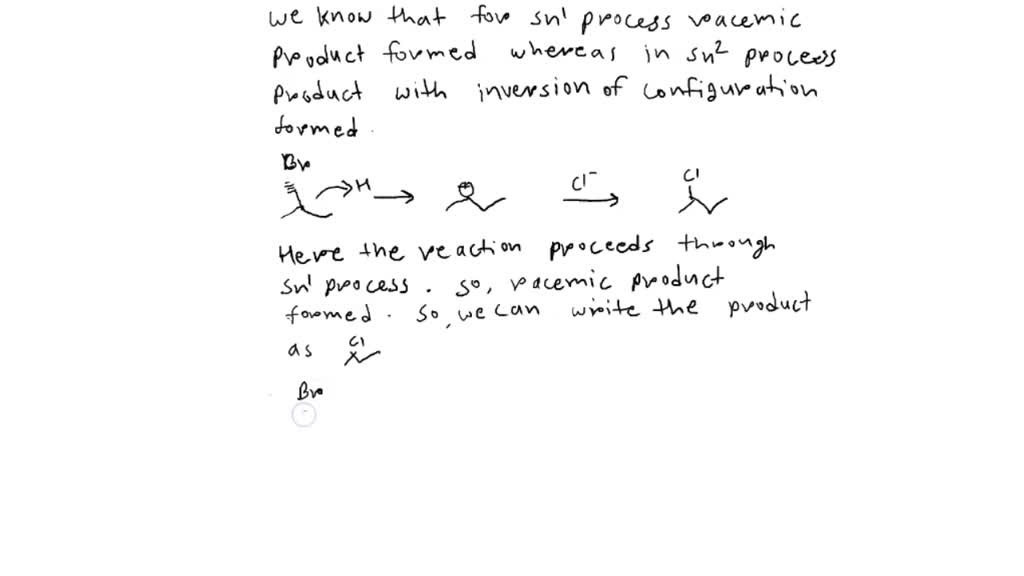 we know that for sn1 process racemic
product formed whereas in sn2 process
product with inversion of configuration
formed.
Br
H
⊕
Cl-
Cl
Here the reaction proceeds through
sn1 process. so, racemic product
formed. so, we can write the product
as
Cl
Br